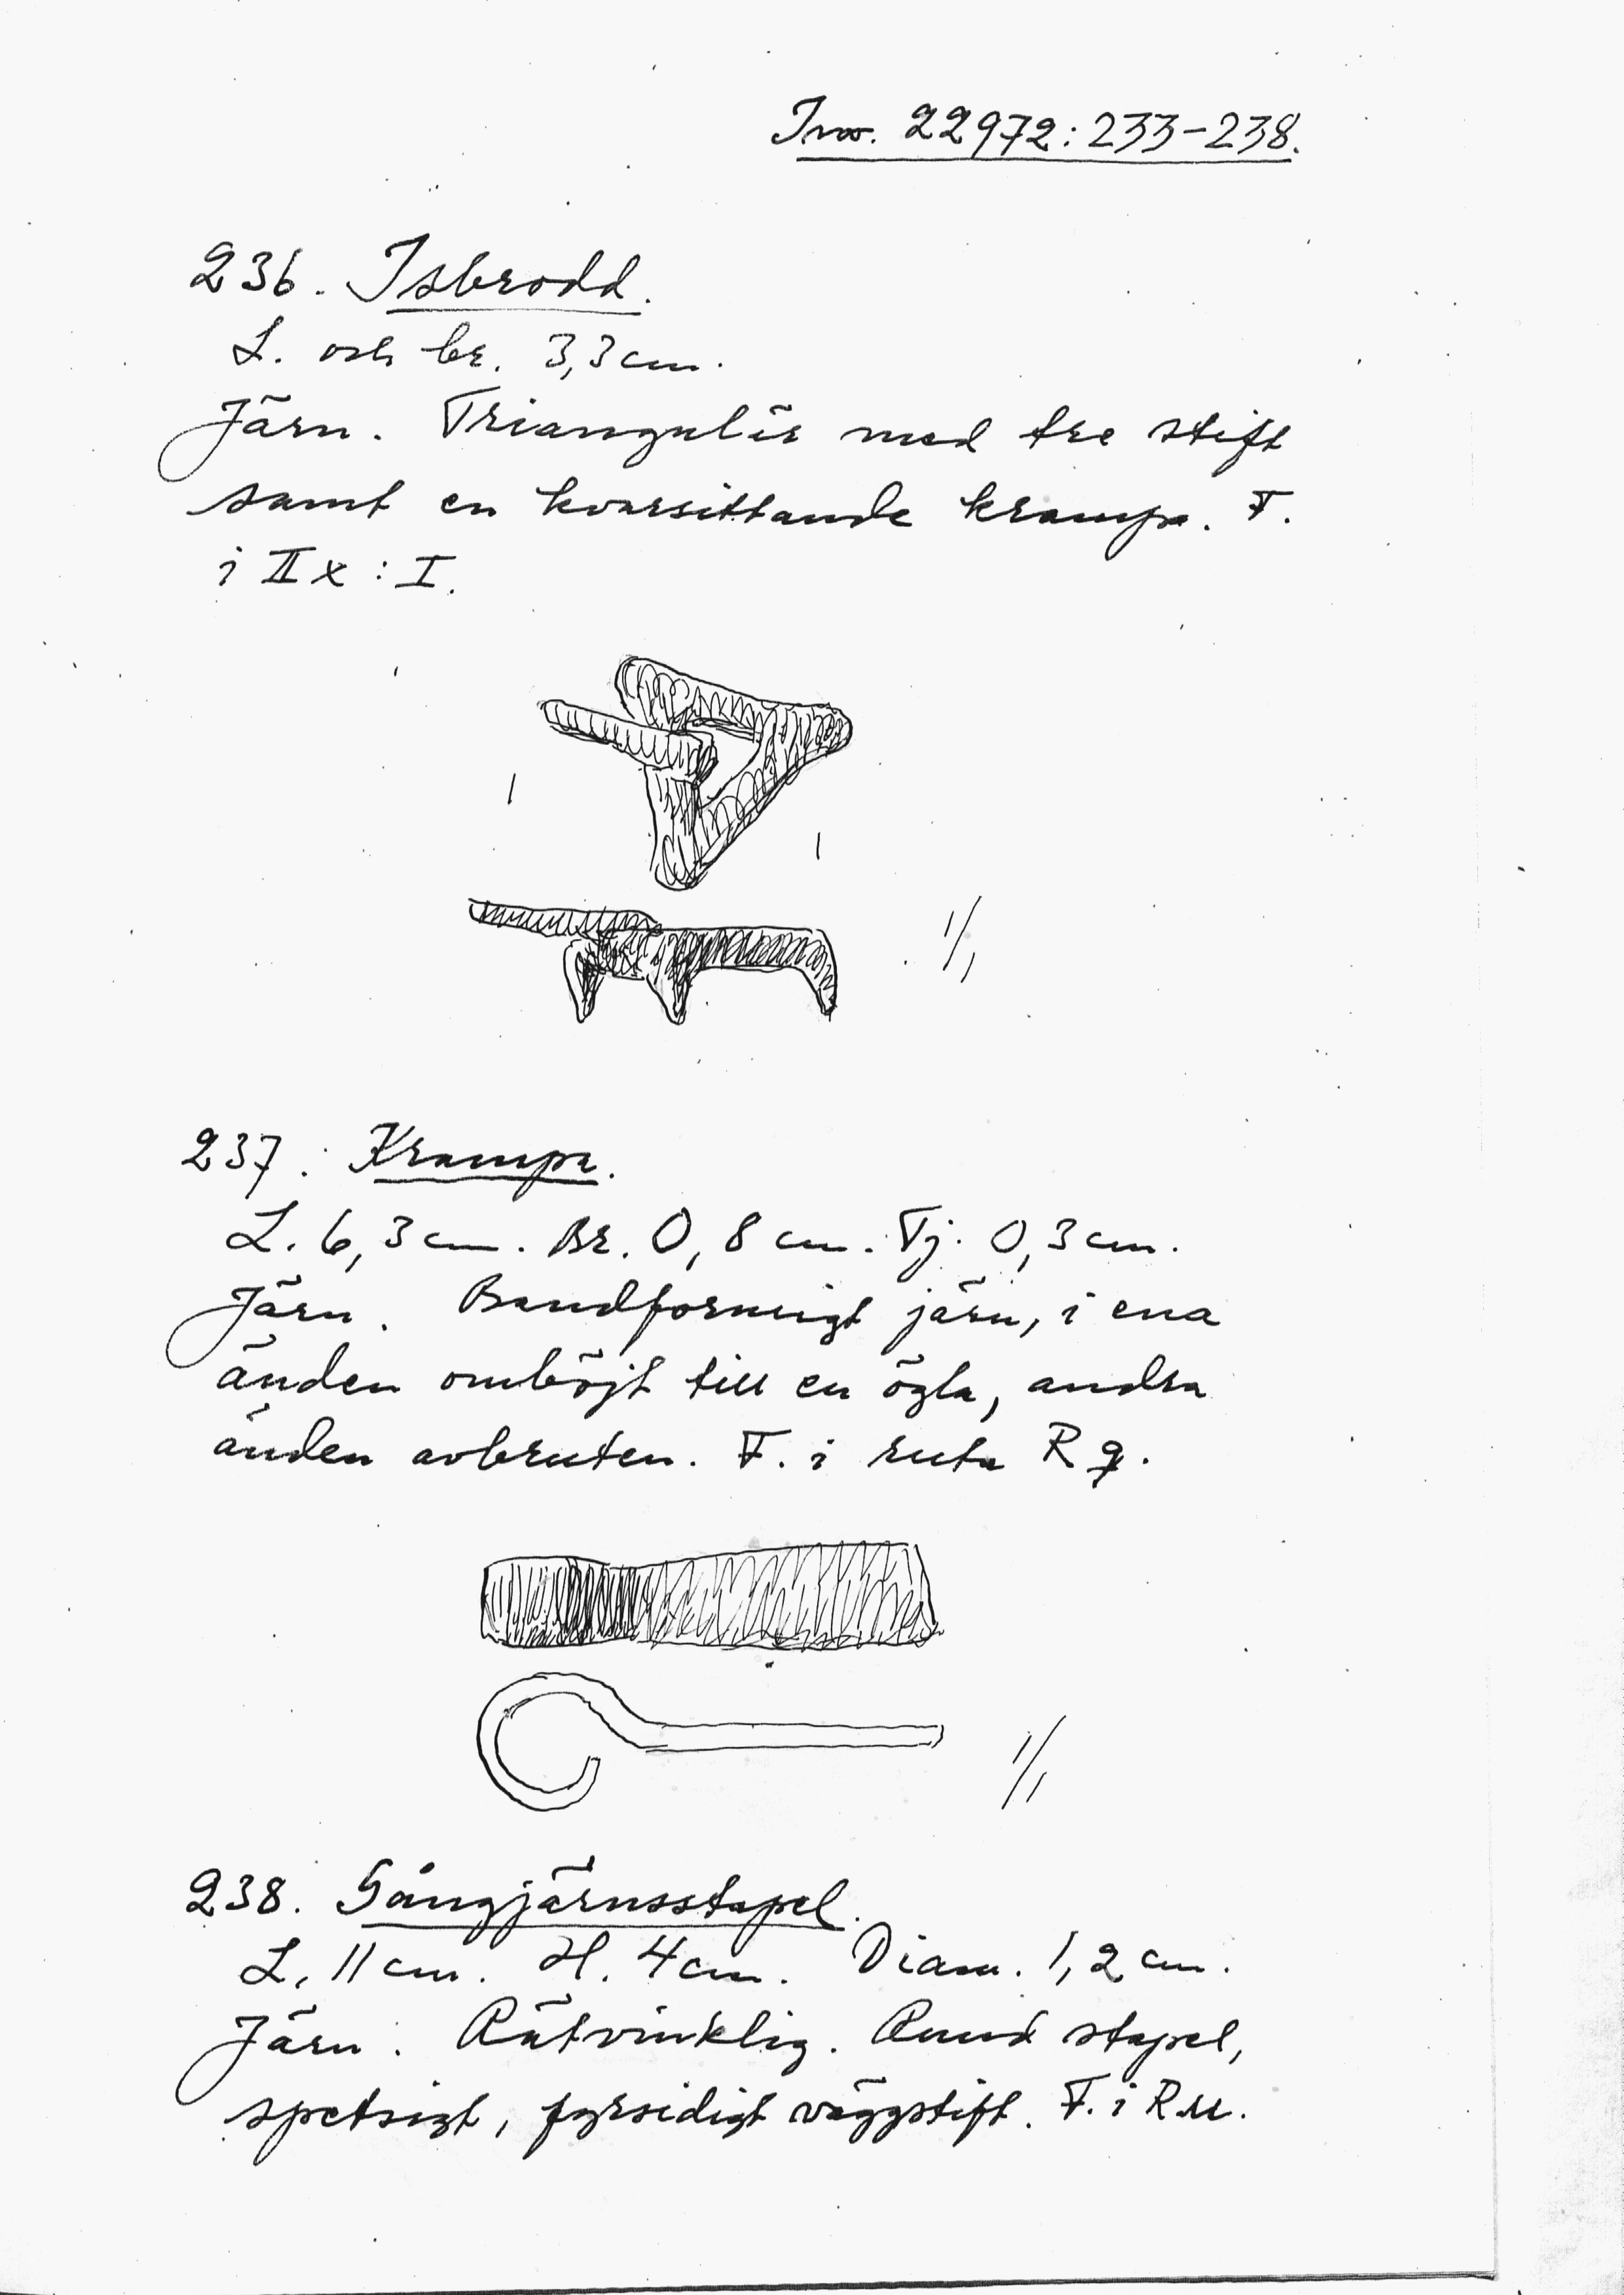 Inv. 22972:233-238.
236. Isbrodd.
L. och br. 3,3 cm.
Järn. Triangulär med tre stift
samt en kvarsittande krampa. F.
i II x : I.
1/1
237. Krampa.
L. 6,3 cm. Br. 0,8 cm. Tj. 0,3 cm.
Järn. Bandformigt järn, i ena
änden omböjt till en ögla, andra
änden avbruten. F. i ruta R q.
1/1
238. Gångjärnsstapel.
L. 11 cm. H. 4 cm. Diam. 1,2 cm.
Järn. Rätvinklig. Rund stapel,
spetsigt, fyrsidigt väggstift. F. i R